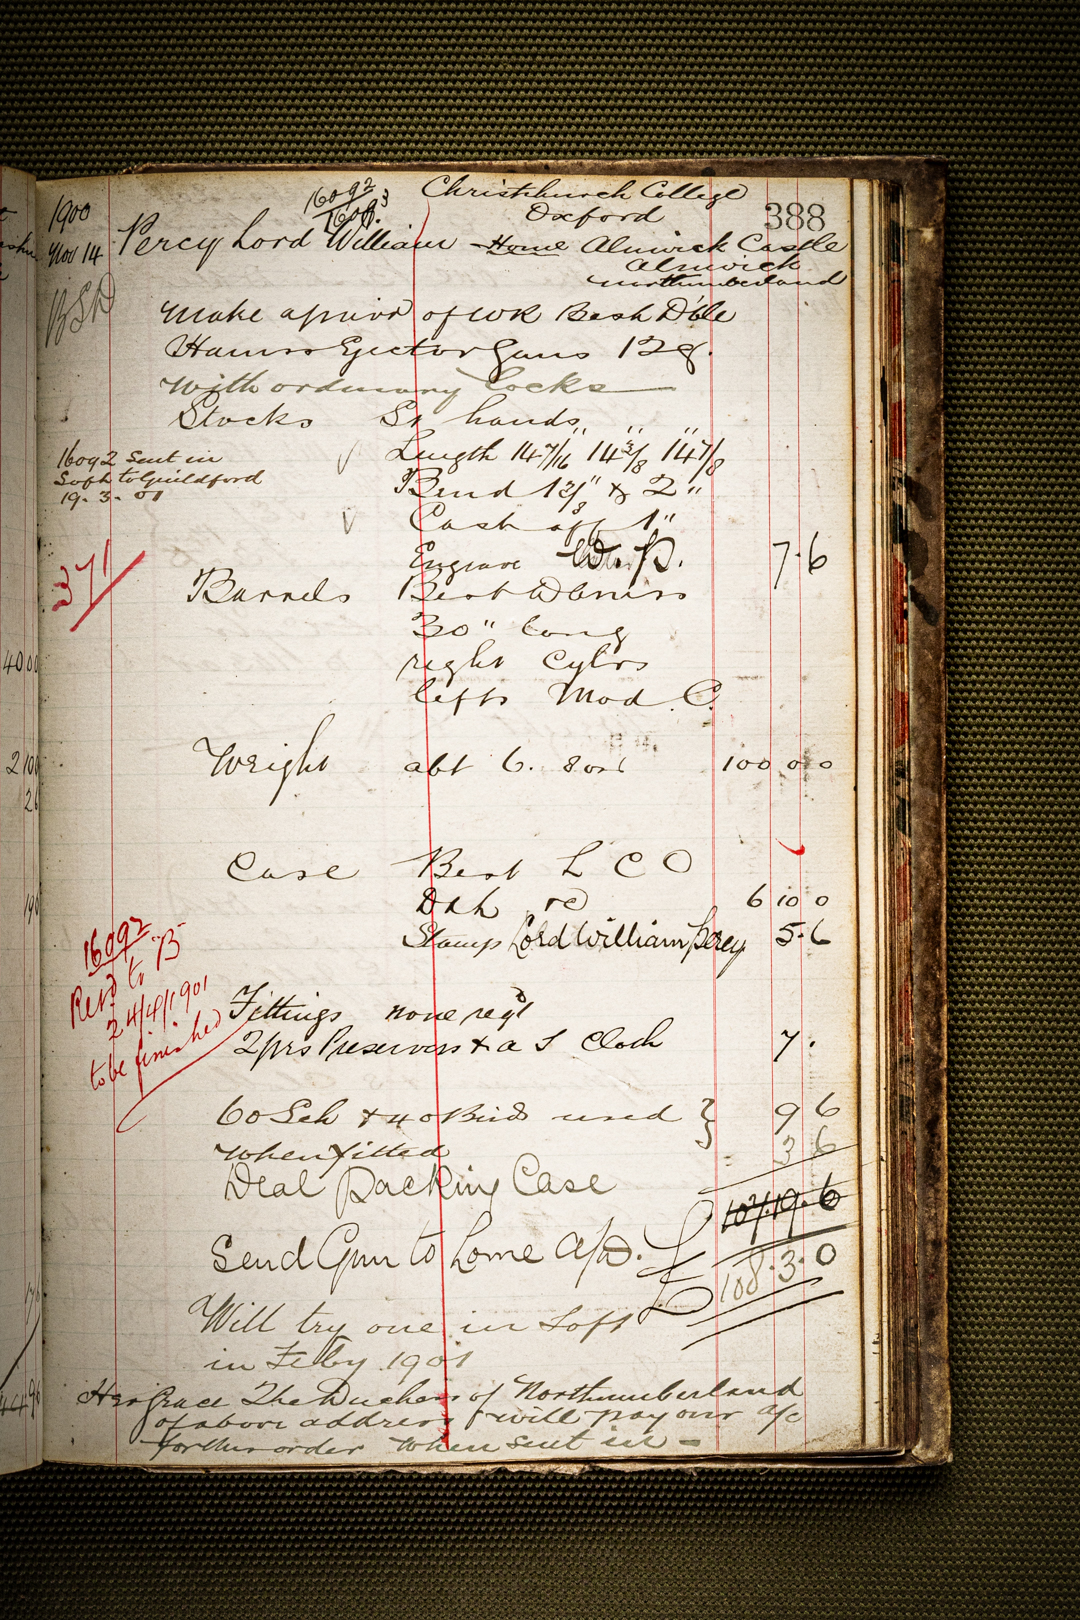 1900
16092
16093
Christchurch College
Oxford
388
Nov 14 Percy Lord William - Home Alnwick Castle
Alnwick
Northumberland
Make a pair of WR Best Dble
Hamrs Ejector Guns 12g.
With ordinary locks
Stocks St hands
Length 14 7/16" 14 3/8" 14 7/8"
16092 Sent in
Soft to Guildford
19. 3. 01
Bend 1 3/8" & 2"
Cast off 1"
Engrave W. P. 7-6
371
Barrels Best
30" long
right Cylrs
lefts Mod. C.
Weight abt 6. 8 ozs 100 0 0
Case Best L C O
6 10 0
Stamp Lord William Percy 5-6
16092
Retd to "B"
24/4/1901
to be finished
Fittings none reqd
2 prs Preservers & a S Cloth 7.
60 Sch & 40 Birds used } 9 6
when fitted 3 6
Deal Packing Case
107.19.6
Send Gun to home a/d. 108.3.0
Will try one in Soft
in Feby 1901
Her Grace The Duchess of Northumberland
of above address will pay our a/c
for this order when sent in -
4000